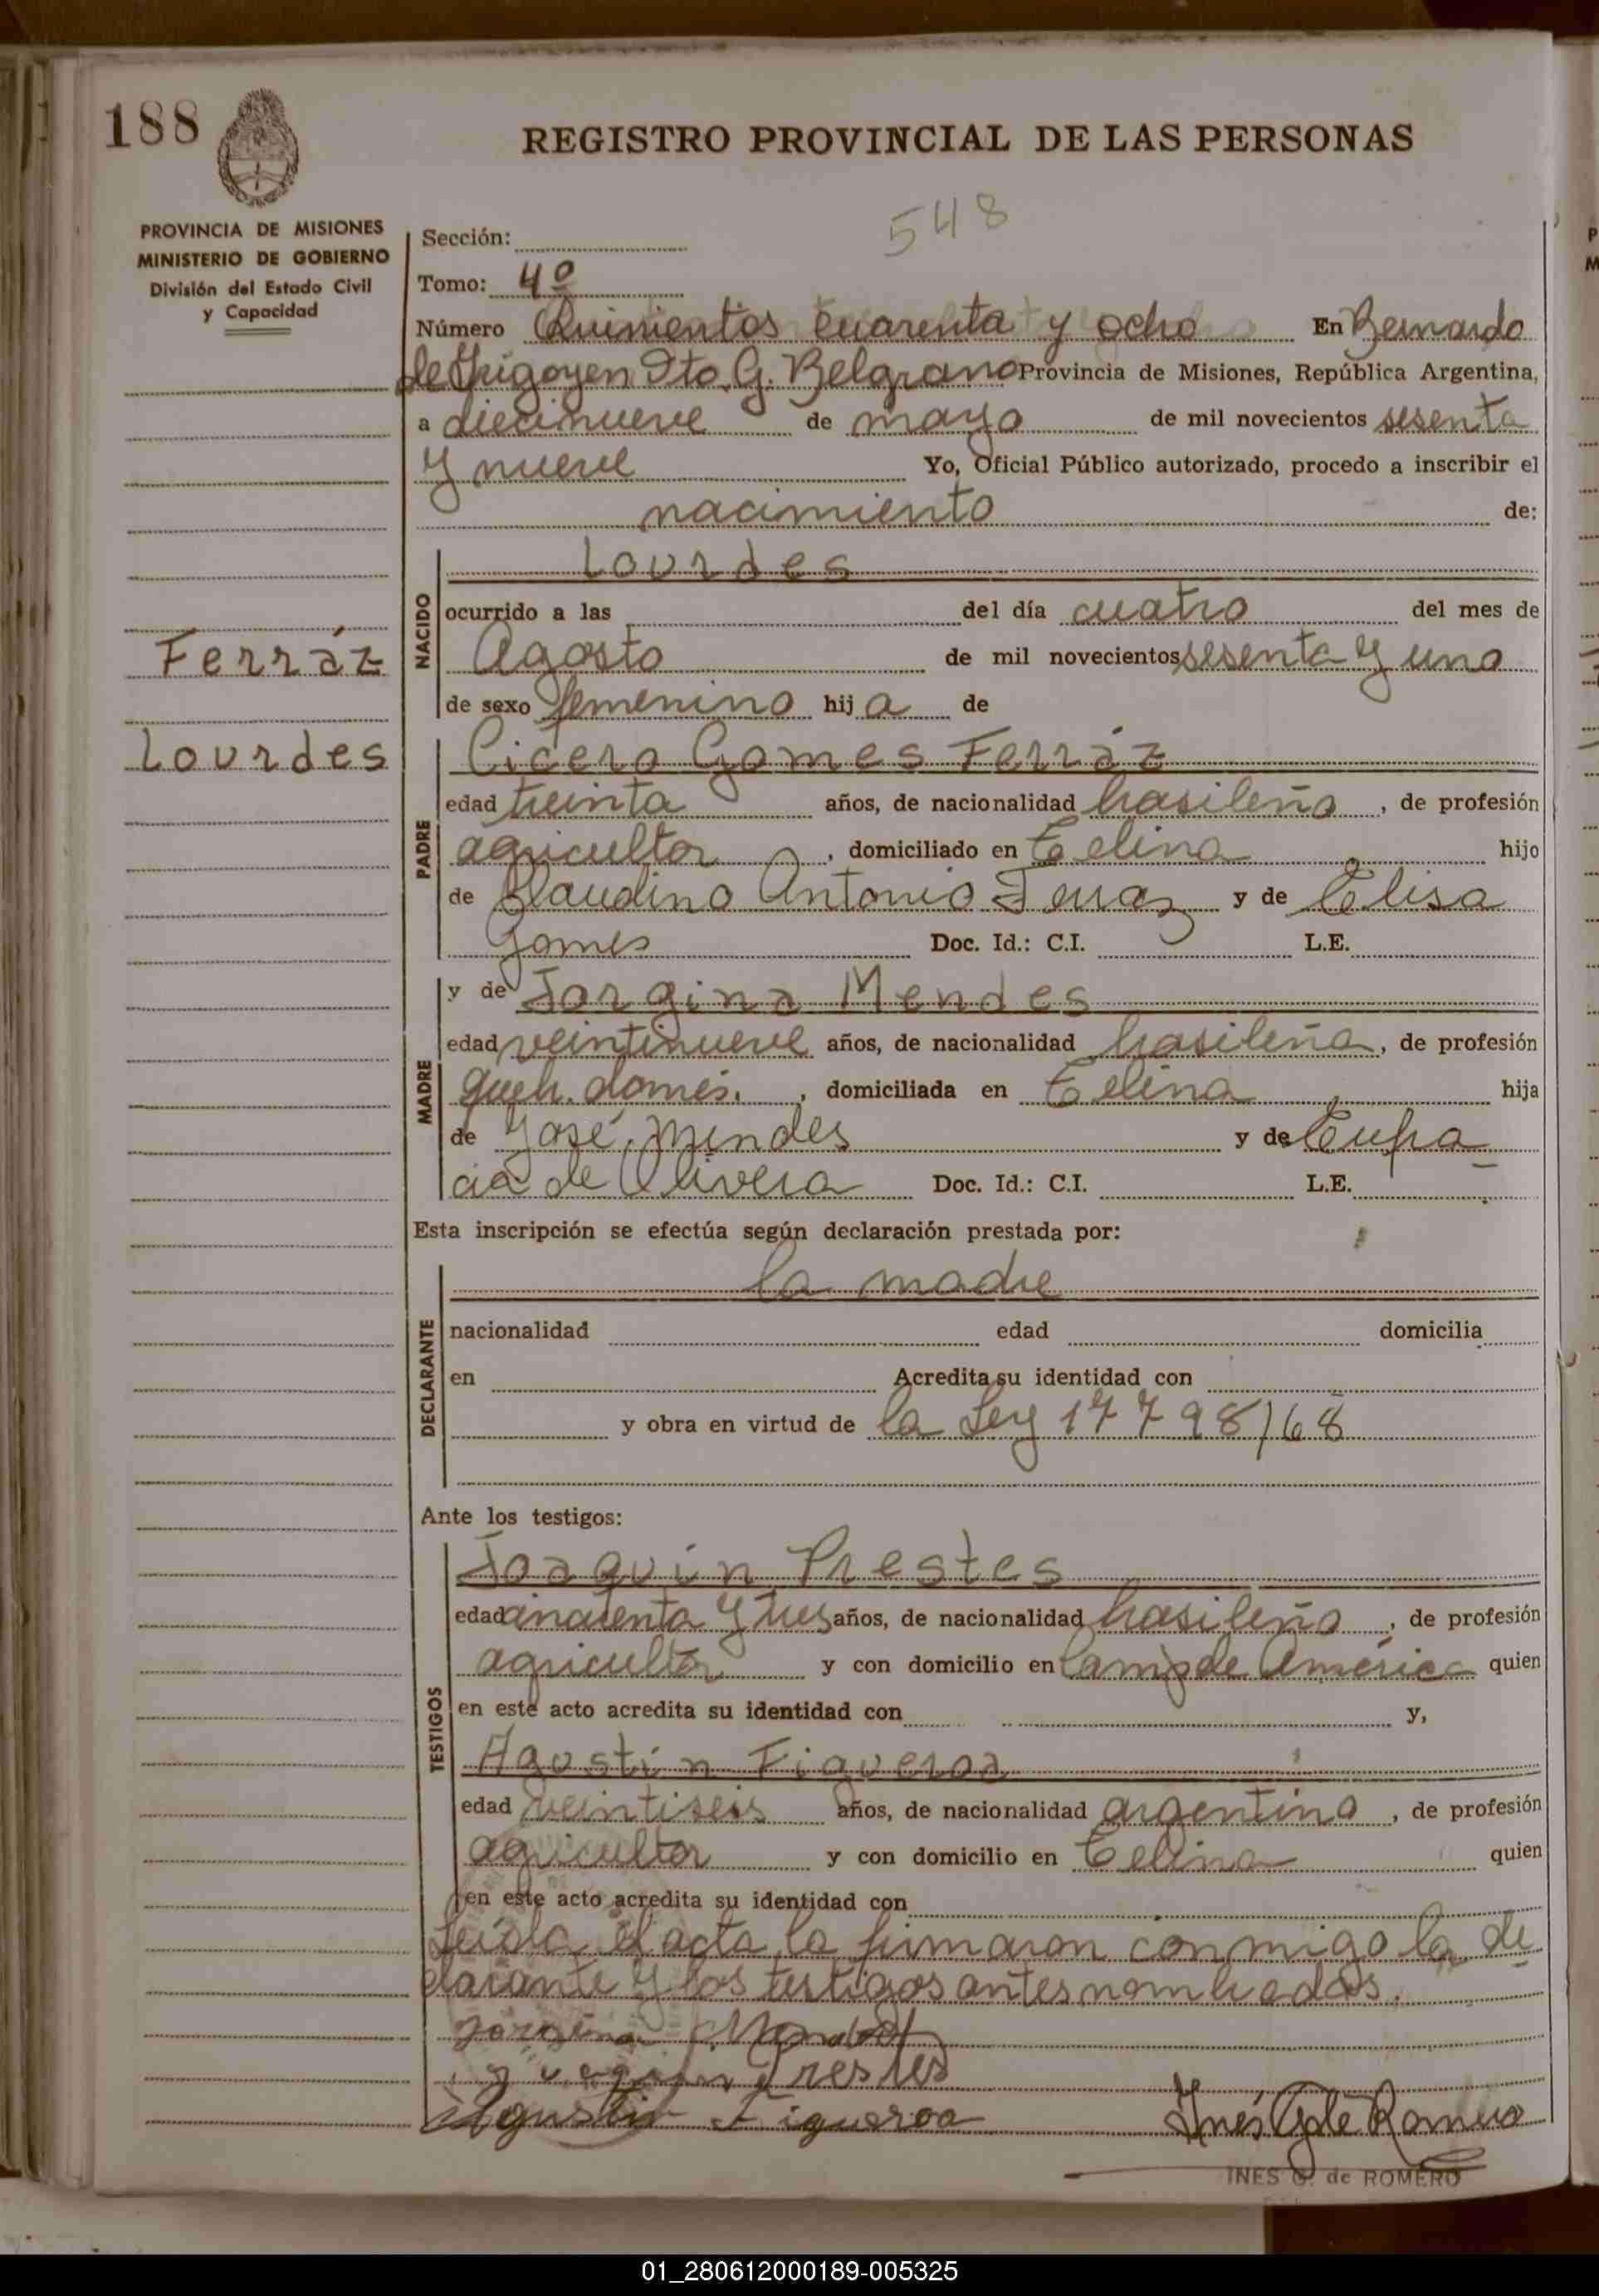 188
REGISTRO PROVINCIAL DE LAS PERSONAS
548
PROVINCIA DE MISIONES
MINISTERIO DE GOBIERNO
División del Estado Civil
y Capacidad
Sección:
Tomo: 4º
Número Quinientos cuarenta y ocho En Bernardo
de Irigoyen Dto. G. Belgrano Provincia de Misiones, República Argentina,
a diecinueve de mayo de mil novecientos sesenta
y nueve Yo, Oficial Público autorizado, procedo a inscribir el
nacimiento de:
NACIDO
Lourdes
ocurrido a las del día cuatro del mes de
Ferráz
Agosto de mil novecientos sesenta y uno
de sexo femenino hij a de
Lourdes
PADRE
Cicero Gomes Ferráz
edad treinta años, de nacionalidad brasileño, de profesión
agricultor, domiciliado en Celina hijo
de Claudino Antonio Ferraz y de Elisa
Gomes Doc. Id.: C.I. L.E.
MADRE
y de Jorgina Mendes
edad veintinueve años, de nacionalidad brasileña, de profesión
queh. domés., domiciliada en Celina hija
de José Mendes y de
cia de Olivera Doc. Id.: C.I. L.E.
Esta inscripción se efectúa según declaración prestada por:
DECLARANTE
la madre
nacionalidad edad domicilia
en Acredita su identidad con
y obra en virtud de la Ley 17798/68
Ante los testigos:
TESTIGOS
Joaquín Prestes
edad cincuenta y tres años, de nacionalidad brasileño, de profesión
agricultor y con domicilio en de América quien
en este acto acredita su identidad con y,
Agustín Figueroa
edad veintiseis años, de nacionalidad argentino, de profesión
agricultor y con domicilio en Celina quien
en este acto acredita su identidad con
Leída el acta la firmaron conmigo la de
clarante y los testigos antes nombrados.
Jorgina Mendes
Prestes
Agustin Figueroa
Inés G. de Romero
INES G. de ROMERO
01_280612000189-005325